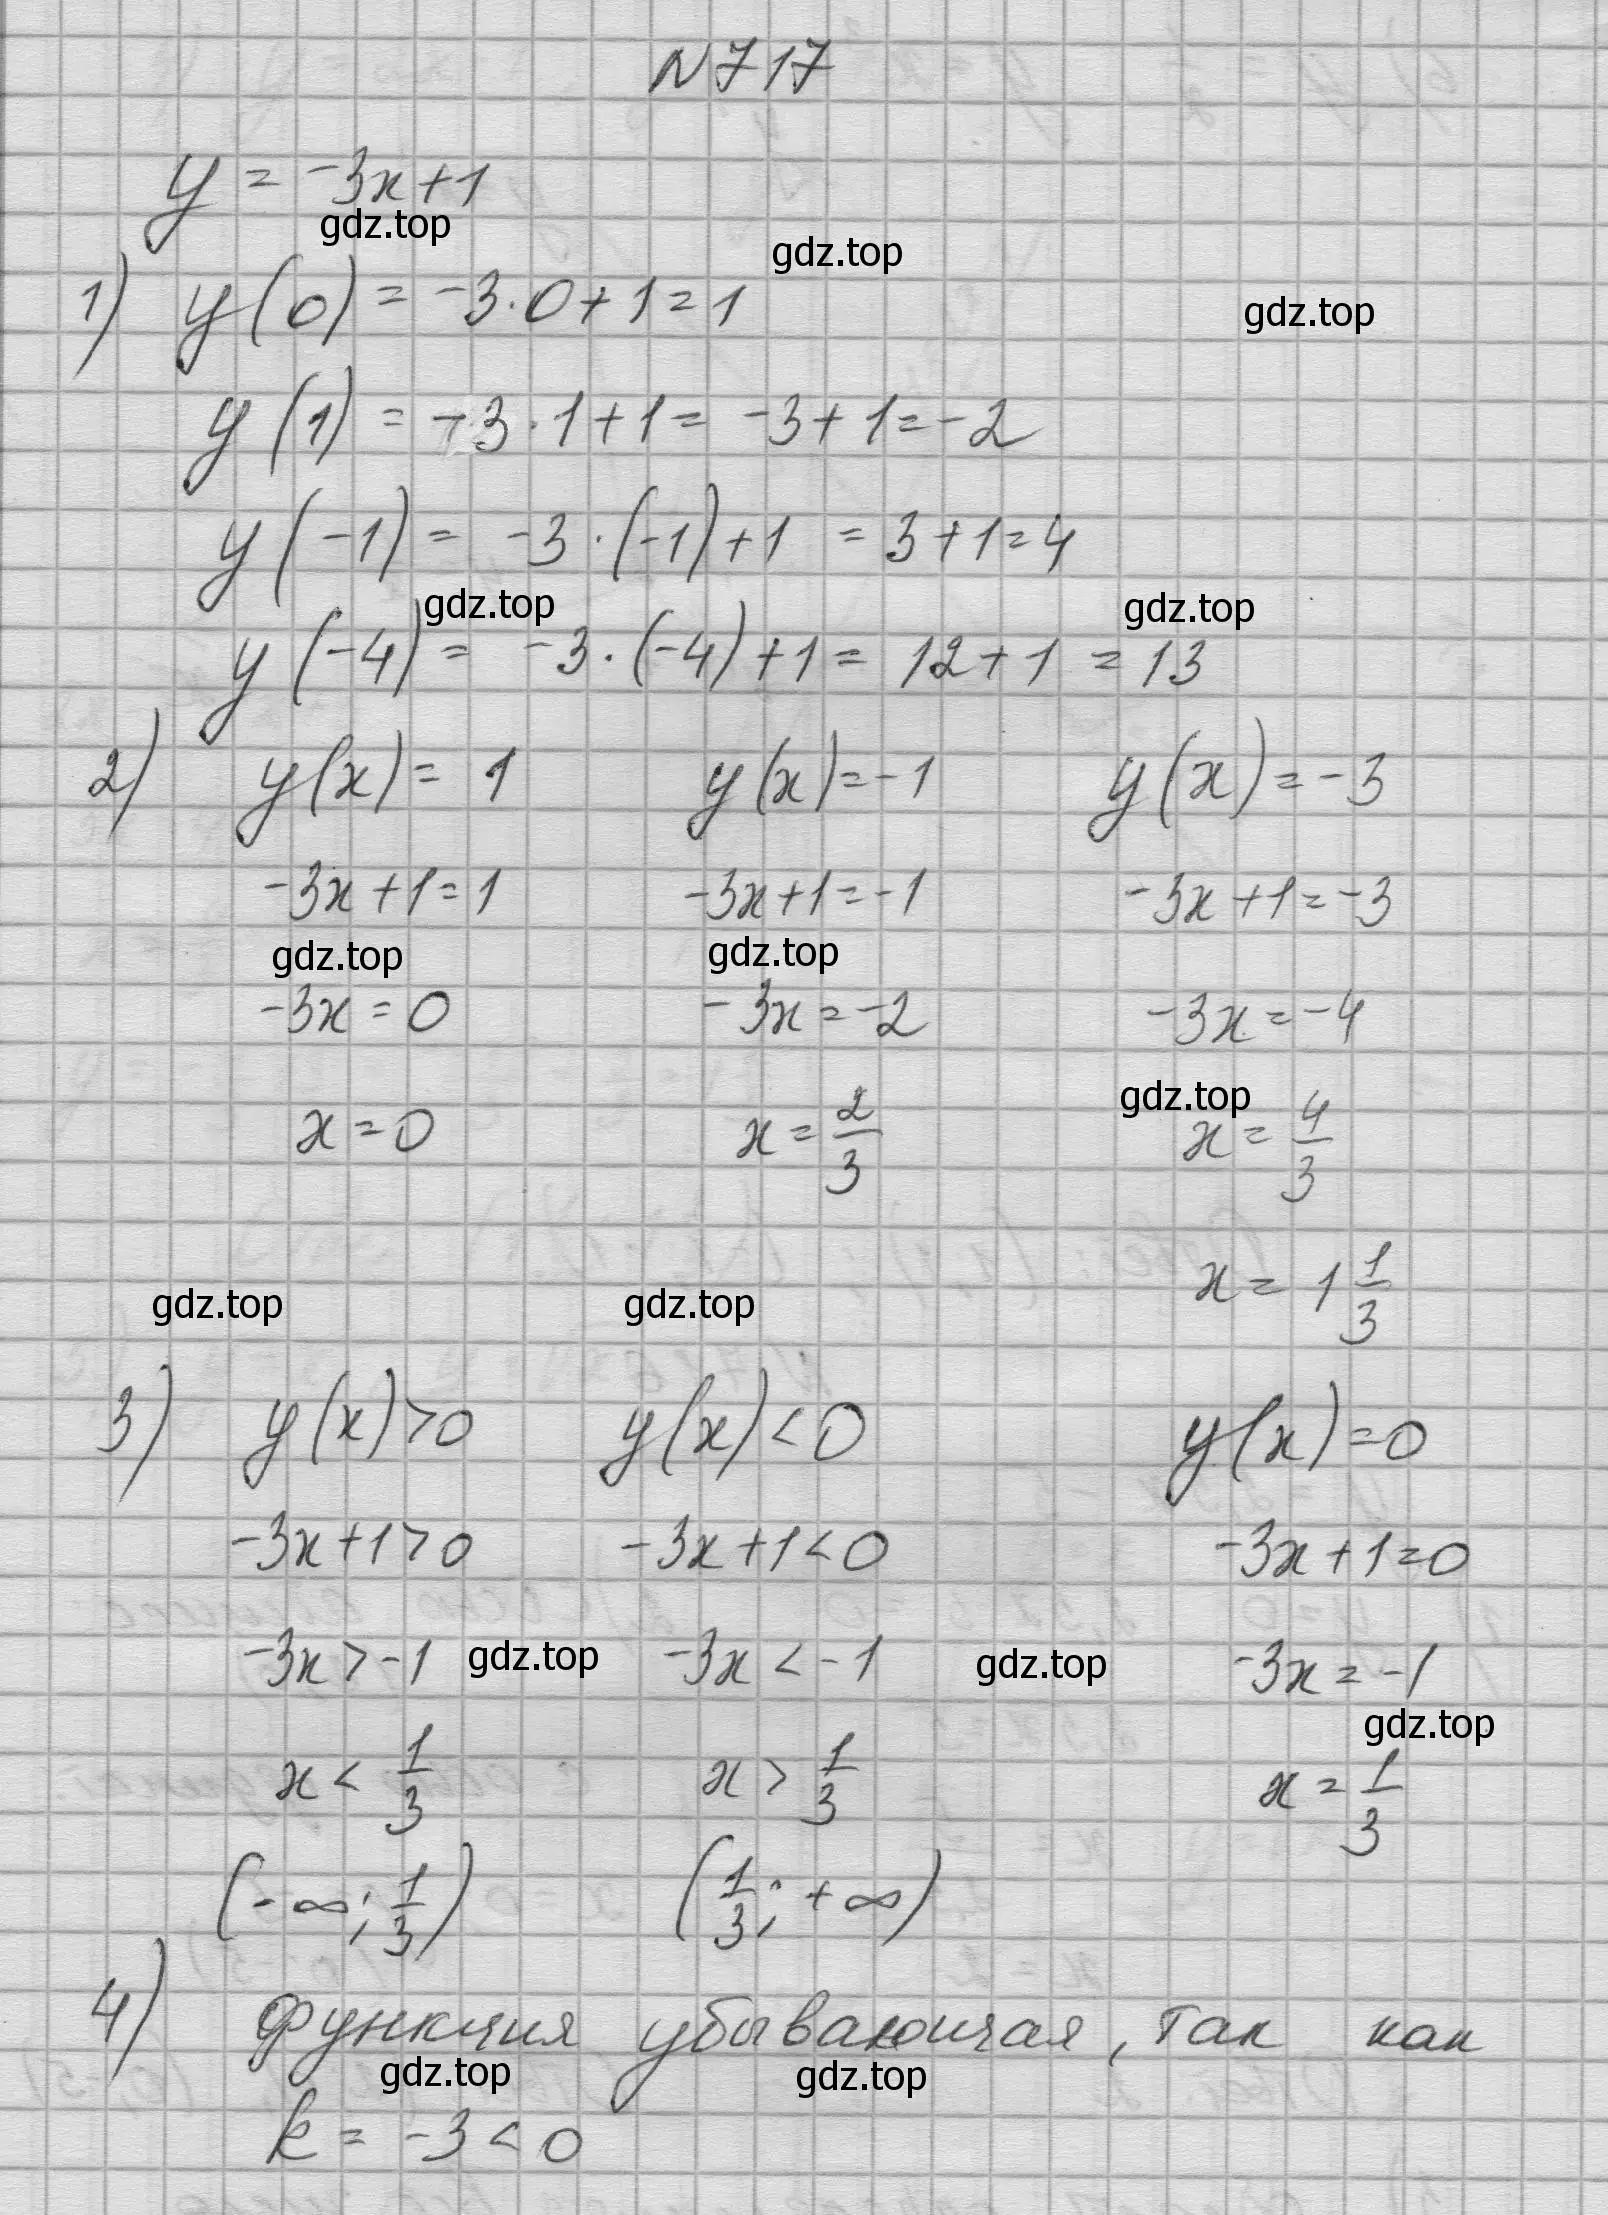 N717
y = -3x+1
gdz.top
gdz.top
1) y(0) = -3·0+1=1
gdz.top
y(1) = -3·1+1= -3+1=-2
y(-1) = -3·(-1)+1 = 3+1=4
gdz.top gdz.top
y(-4) = -3·(-4)+1= 12+1 = 13
2) y(x)= 1 y(x)=-1 y(x)=-3
-3x+1=1 -3x+1=-1 -3x+1=-3
gdz.top gdz.top
-3x=0 -3x=-2 -3x=-4
gdz.top
x=0 x=2/3 x=4/3
x=1 1/3
gdz.top gdz.top
3) y(x)>0 y(x)<0 y(x)=0
-3x+1>0 -3x+1<0 -3x+1=0
-3x>-1 gdz.top -3x<-1 gdz.top -3x=-1
gdz.top
x<1/3 x>1/3 x=1/3
(-∞; 1/3) (1/3; +∞)
4) Функция убывающая, так как
gdz.top gdz.top
k = -3<0